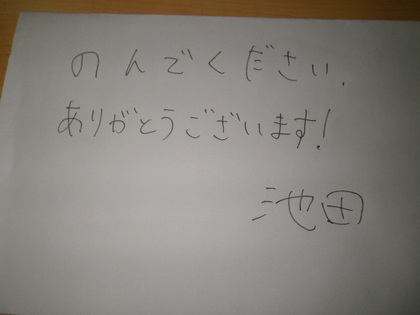 のんでください.
ありがとうございます!
池田